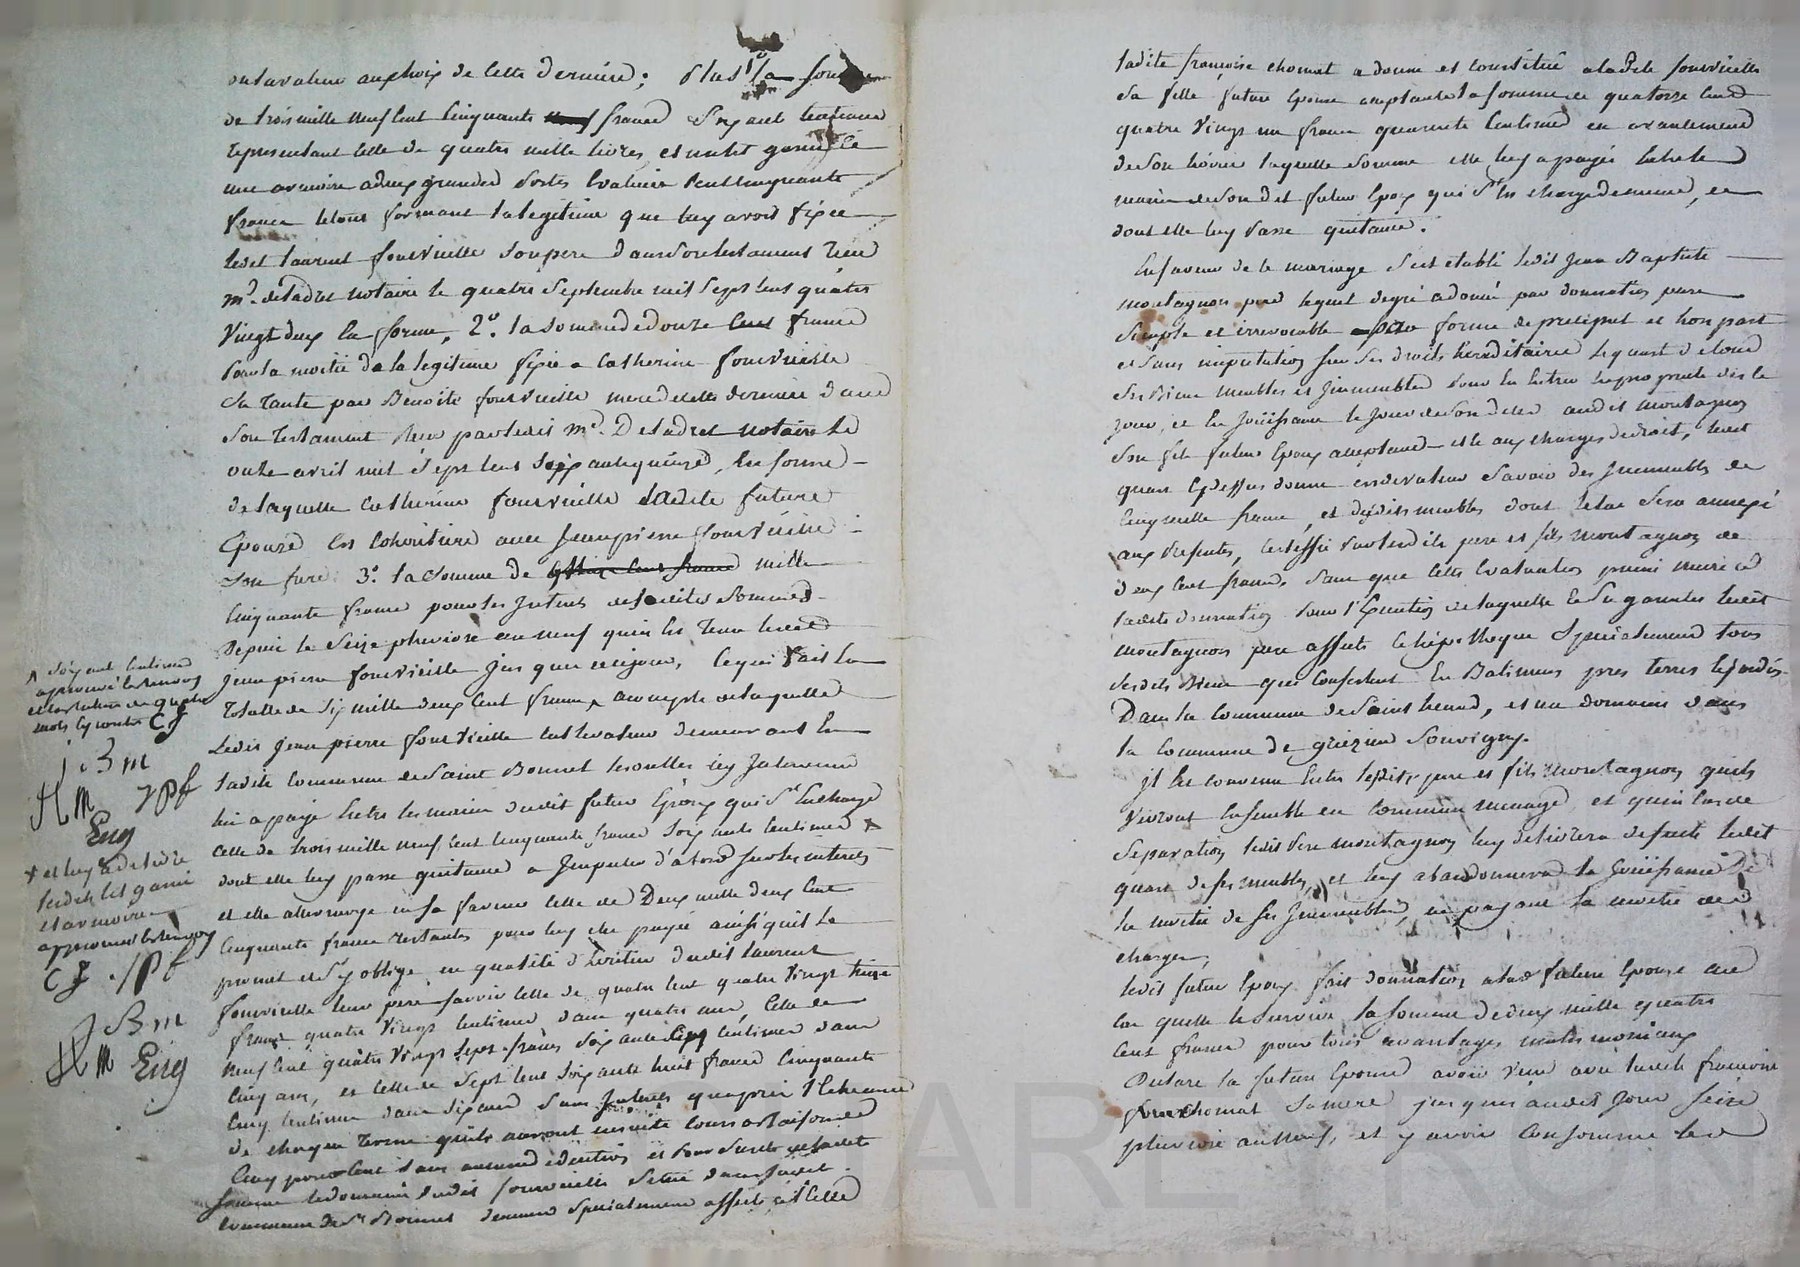 ou la valeur au choix de cette derniere; Plus 1º la somme
de trois mille neuf cent cinquante francs soixante centimes
representant celle de quatre mille livres, et un lit garni et
une armoire a deux grandes portes évaluée cent cinquante
francs le tout formant la legitime que luy avoit fixée
ledit laurent fourvieille son pere dans son testament reçu
me. deladret notaire le quatre septembre mil sept cent quatre
vingt deux en forme, 2º. la somme de douze cent francs
pour la moitié de la legitime fixée a catherine fourvieille
sa tante par Benoite fourvieille mere de cette derniere dans
son testament reçu par ledit me. Deladret notaire le
onze avril mil sept cent soixante quinze, en forme
de laquelle catherine fourvieille ladite future
Epouse est cohéritiere avec jean pierre fourvieille
son frere. 3º. la somme de mille
cinquante francs pour les interets desdites sommes
depuis le seize pluviose an neuf qu'en est tenu ledit
jean pierre fourvieille jusques a ce jour, ce qui fait en
totalle de six mille deux cent francs, a compte de laquelle
Ledit jean pierre fourvieille cultivateur demeurant en
ladite commune de Saint Bonnet les oulles icy intervenu
lui a payé entre les mains dudit futur Epoux qui s'en charge
celle de trois mille neuf cent cinquante francs soixante centimes x
dont elle luy passe quittance a imputer d'abord sur les interets
et elle attermoye en sa faveur celle de Deux mille deux cent
cinquante francs restants pour luy etre payée ainsi qu'il le
promet et s'y oblige en qualité d'heritier dudit laurent
fourvieille leur pere savoir celle de quatre cent quatre vingt treize
francs quatre vingt centimes dans quatre ans, celle de
neuf cent quatre vingt sept francs soixante cinq centimes dans
cinq ans, et celle de sept cent soixante huit francs cinquante
cinq centimes dans six ans sans interets qu'apres l'echeance
de chaque terme qu'ils auront ensuite cours a raison de
cinq pour cent sans aucune deduction et pour sureté de ladite
somme le domaine dudit fourvieille situé dans ladite
commune de St Bonnet demeure specialement affecté et celle
^ soixante centimes
approuvé le renvoy
et la rature de quatre
mots cy contre C f
J B m
H m J P f
Eng
x et luy a delivré
lesdits lit garni
et armoire
approuvé le renvoy
C f J P f
J B m
H m Eng
ladite françoise chomat a donné et constitué a ladite fourvieille
sa fille future Epouse acceptante la somme de quatorze cent
quatre vingt un francs quarante centimes en avancement
de son hoirie laquelle somme elle luy a payée entre les
mains de son dit futur Epoux qui s'en charge de meme, et
dont elle luy passe quittance.
En faveur de ce mariage s'est etabli ledit Jean Baptiste
montagnon pere lequel de gré a donné par donnation pure
simple et irrevocable par forme de preciput et hors part
et sans imputation sur ses droits héréditaires le quart de tous
ses Biens meubles et immeubles pour en entrer en proprieté des ce
jour, et en jouissance le jour de son deces audit montagnon
son fils futur Epoux acceptant et ce aux charges de droit, ledit
quart cy dessus donné est de valeur savoir des immeubles de
cinq mille francs, et desdits meubles dont l'etat sera annexé
aux presentes, certiffié par lesdits pere et fils montagnon de
deux cent francs, sans que cette Evaluation puisse nuire a
ladite donnation pour l'Execution de laquelle et sa garantie ledit
montagnon pere affecte et hipotheque specialement tous
sesdits Biens qui consistent en Batimens prés terres et jardins
Dans la commune de Saint heand, et un domaine dans
la commune de grézieu Souvigny.
il est convenu entre lesdits pere et fils montagnon qu'ils
vivront ensemble en commun menage, et qu'en cas de
separation ledit pere montagnon luy delivrera de suite ledit
quart de ses meubles, et luy abandonnera la jouissance de
la moitié de ses immeubles, en payant la moitié des
charges;
ledit futur Epoux fait donnation a lad future Epouse au
cas quelle le survive la somme de deux mille quatre
cent francs pour tous avantages matrimoniaux
Declare la future Epouse avoir vecu avec ladite françoise
chomat sa mere jusques audit jour seize
pluviose an neuf, et y avoir consommé les